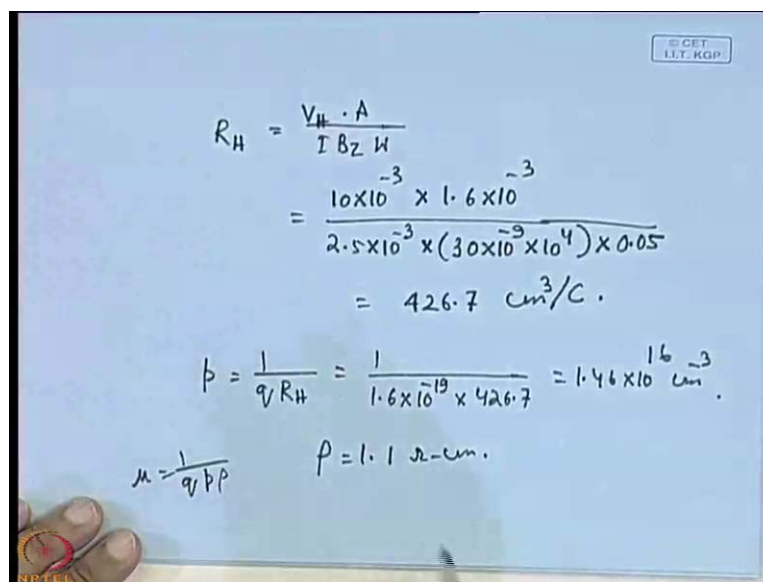 © CET
I.I.T. KGP
R_H = V_H . A / I B_Z W
= 10×10^-3 × 1.6×10^-3 / 2.5×10^-3 × (30×10^-9 × 10^4) × 0.05
= 426.7 cm^3/C .
p = 1 / q R_H = 1 / 1.6×10^-19 × 426.7 = 1.46×10^16 cm^-3 .
μ = 1 / q p ρ ρ = 1.1 Ω-cm.
NPTEL